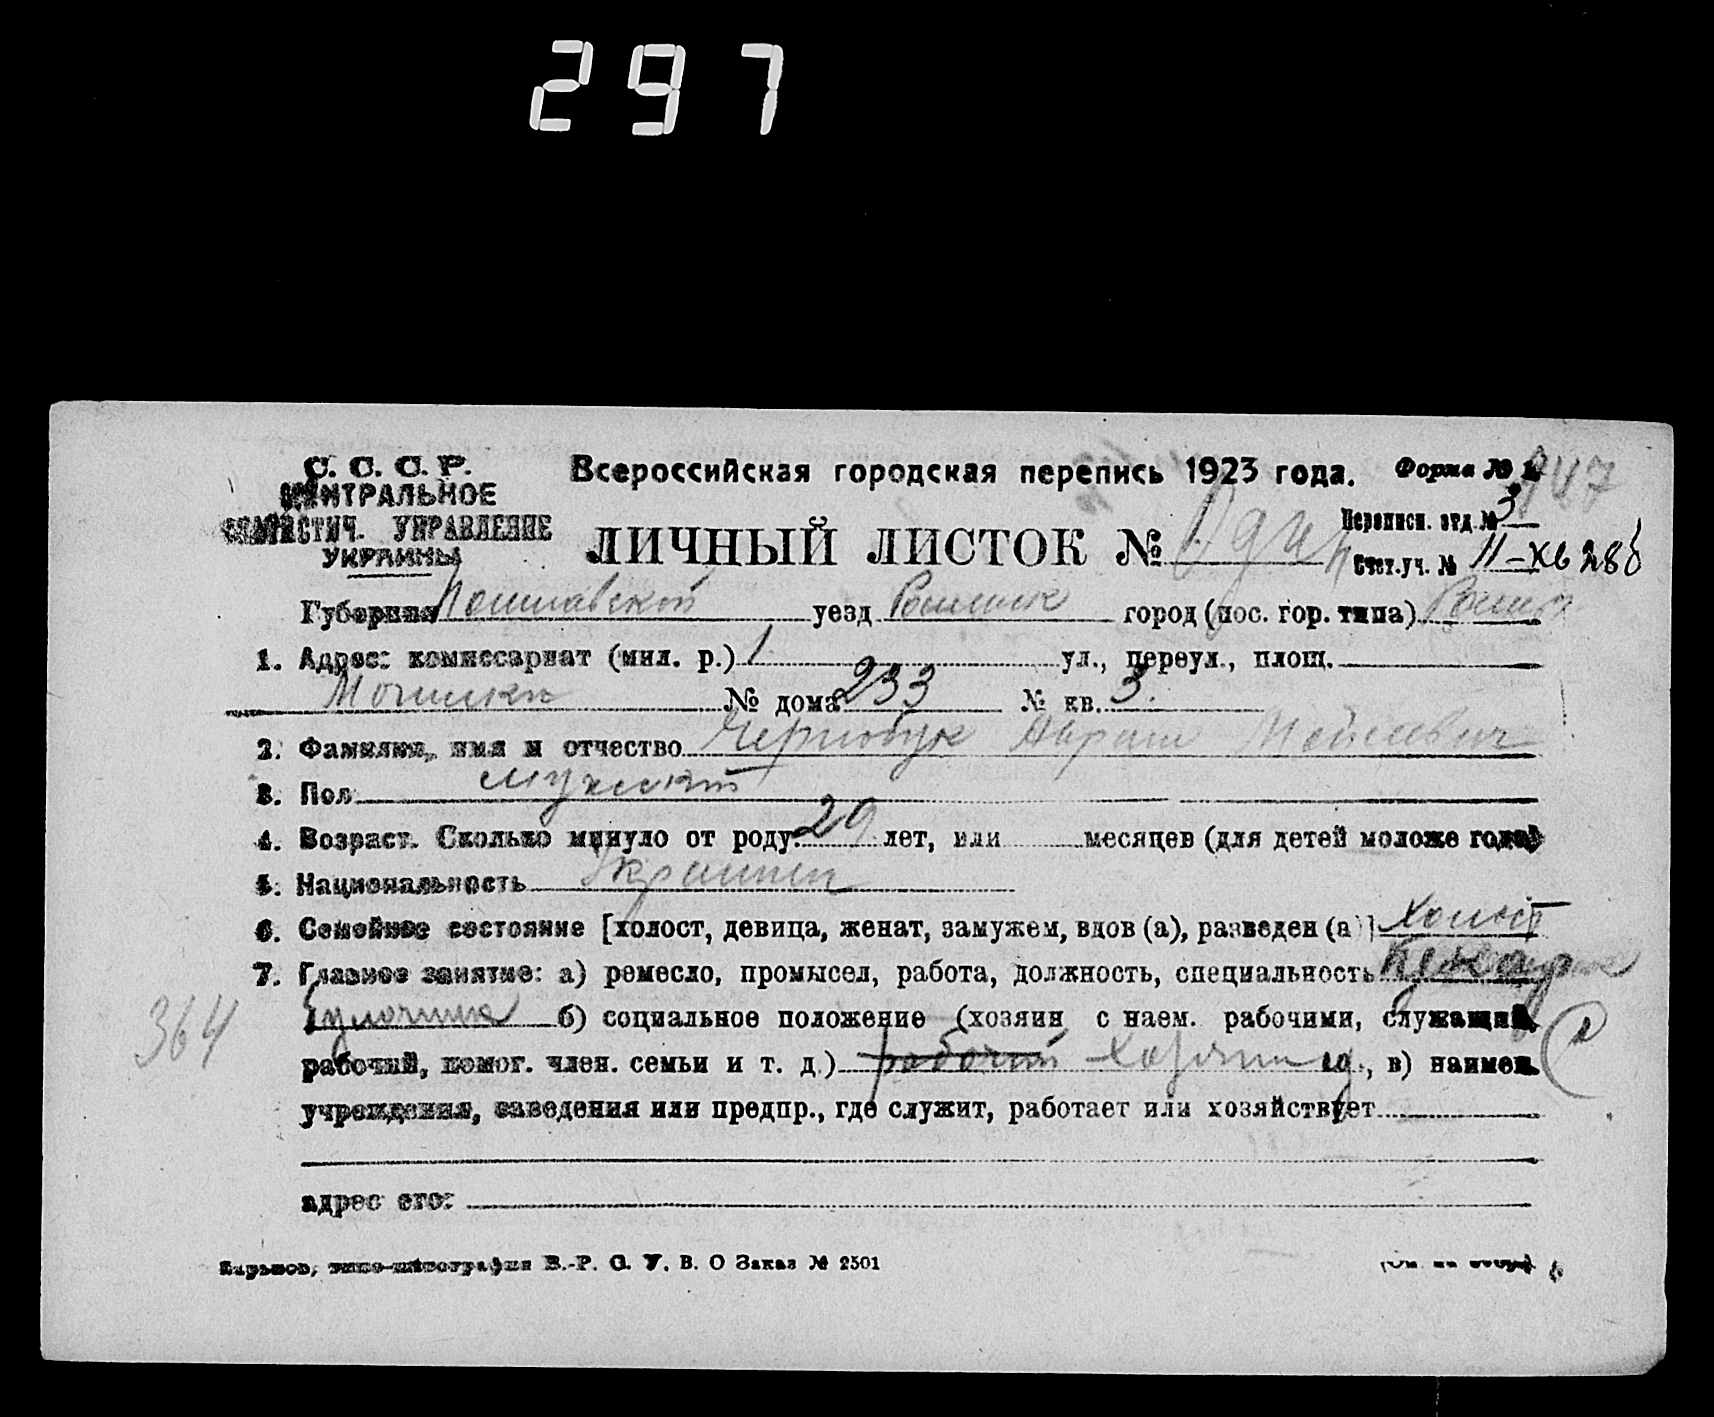 297
С. С. С. Р.
ЦЕНТРАЛЬНОЕ
СТАТИСТИЧ. УПРАВЛЕНИЕ
УКРАИНЫ
Всероссийская городская перепись 1923 года. Форма № 1
947
ЛИЧНЫЙ ЛИСТОК № Один
Переписн. отд № 3
Счет.уч. № 11-XIb 28б
Губерния Полтавской уезд Роменск город (пос. гор. типа) Ромны
1. Адрес: комиссариат (мил. р.) 1 ул., переул., площ.
№ дома 233 № кв. 3.
2. Фамилия, имя и отчество Абрам
3. Пол мужской
4. Возраст. Сколько минуло от роду 29 лет, или месяцев (для детей моложе года)
5. Национальность Украинец
6. Семейное состояние [холост, девица, женат, замужем, вдов (а), разведен (а)] холост
7. Главное занятие: а) ремесло, промысел, работа, должность, специальность Пекарь
364
булочник б) социальное положение (хозяин с наем. рабочими, служащий,
рабочий, помог. член. семьи и т. д.) рабочий Хозяин од., в) наимен.
учреждения, заведения или предпр., где служит, работает или хозяйствует
адрес его:
Харьков, типо-литография В.-Р. С. У. В. О Заказ № 2501